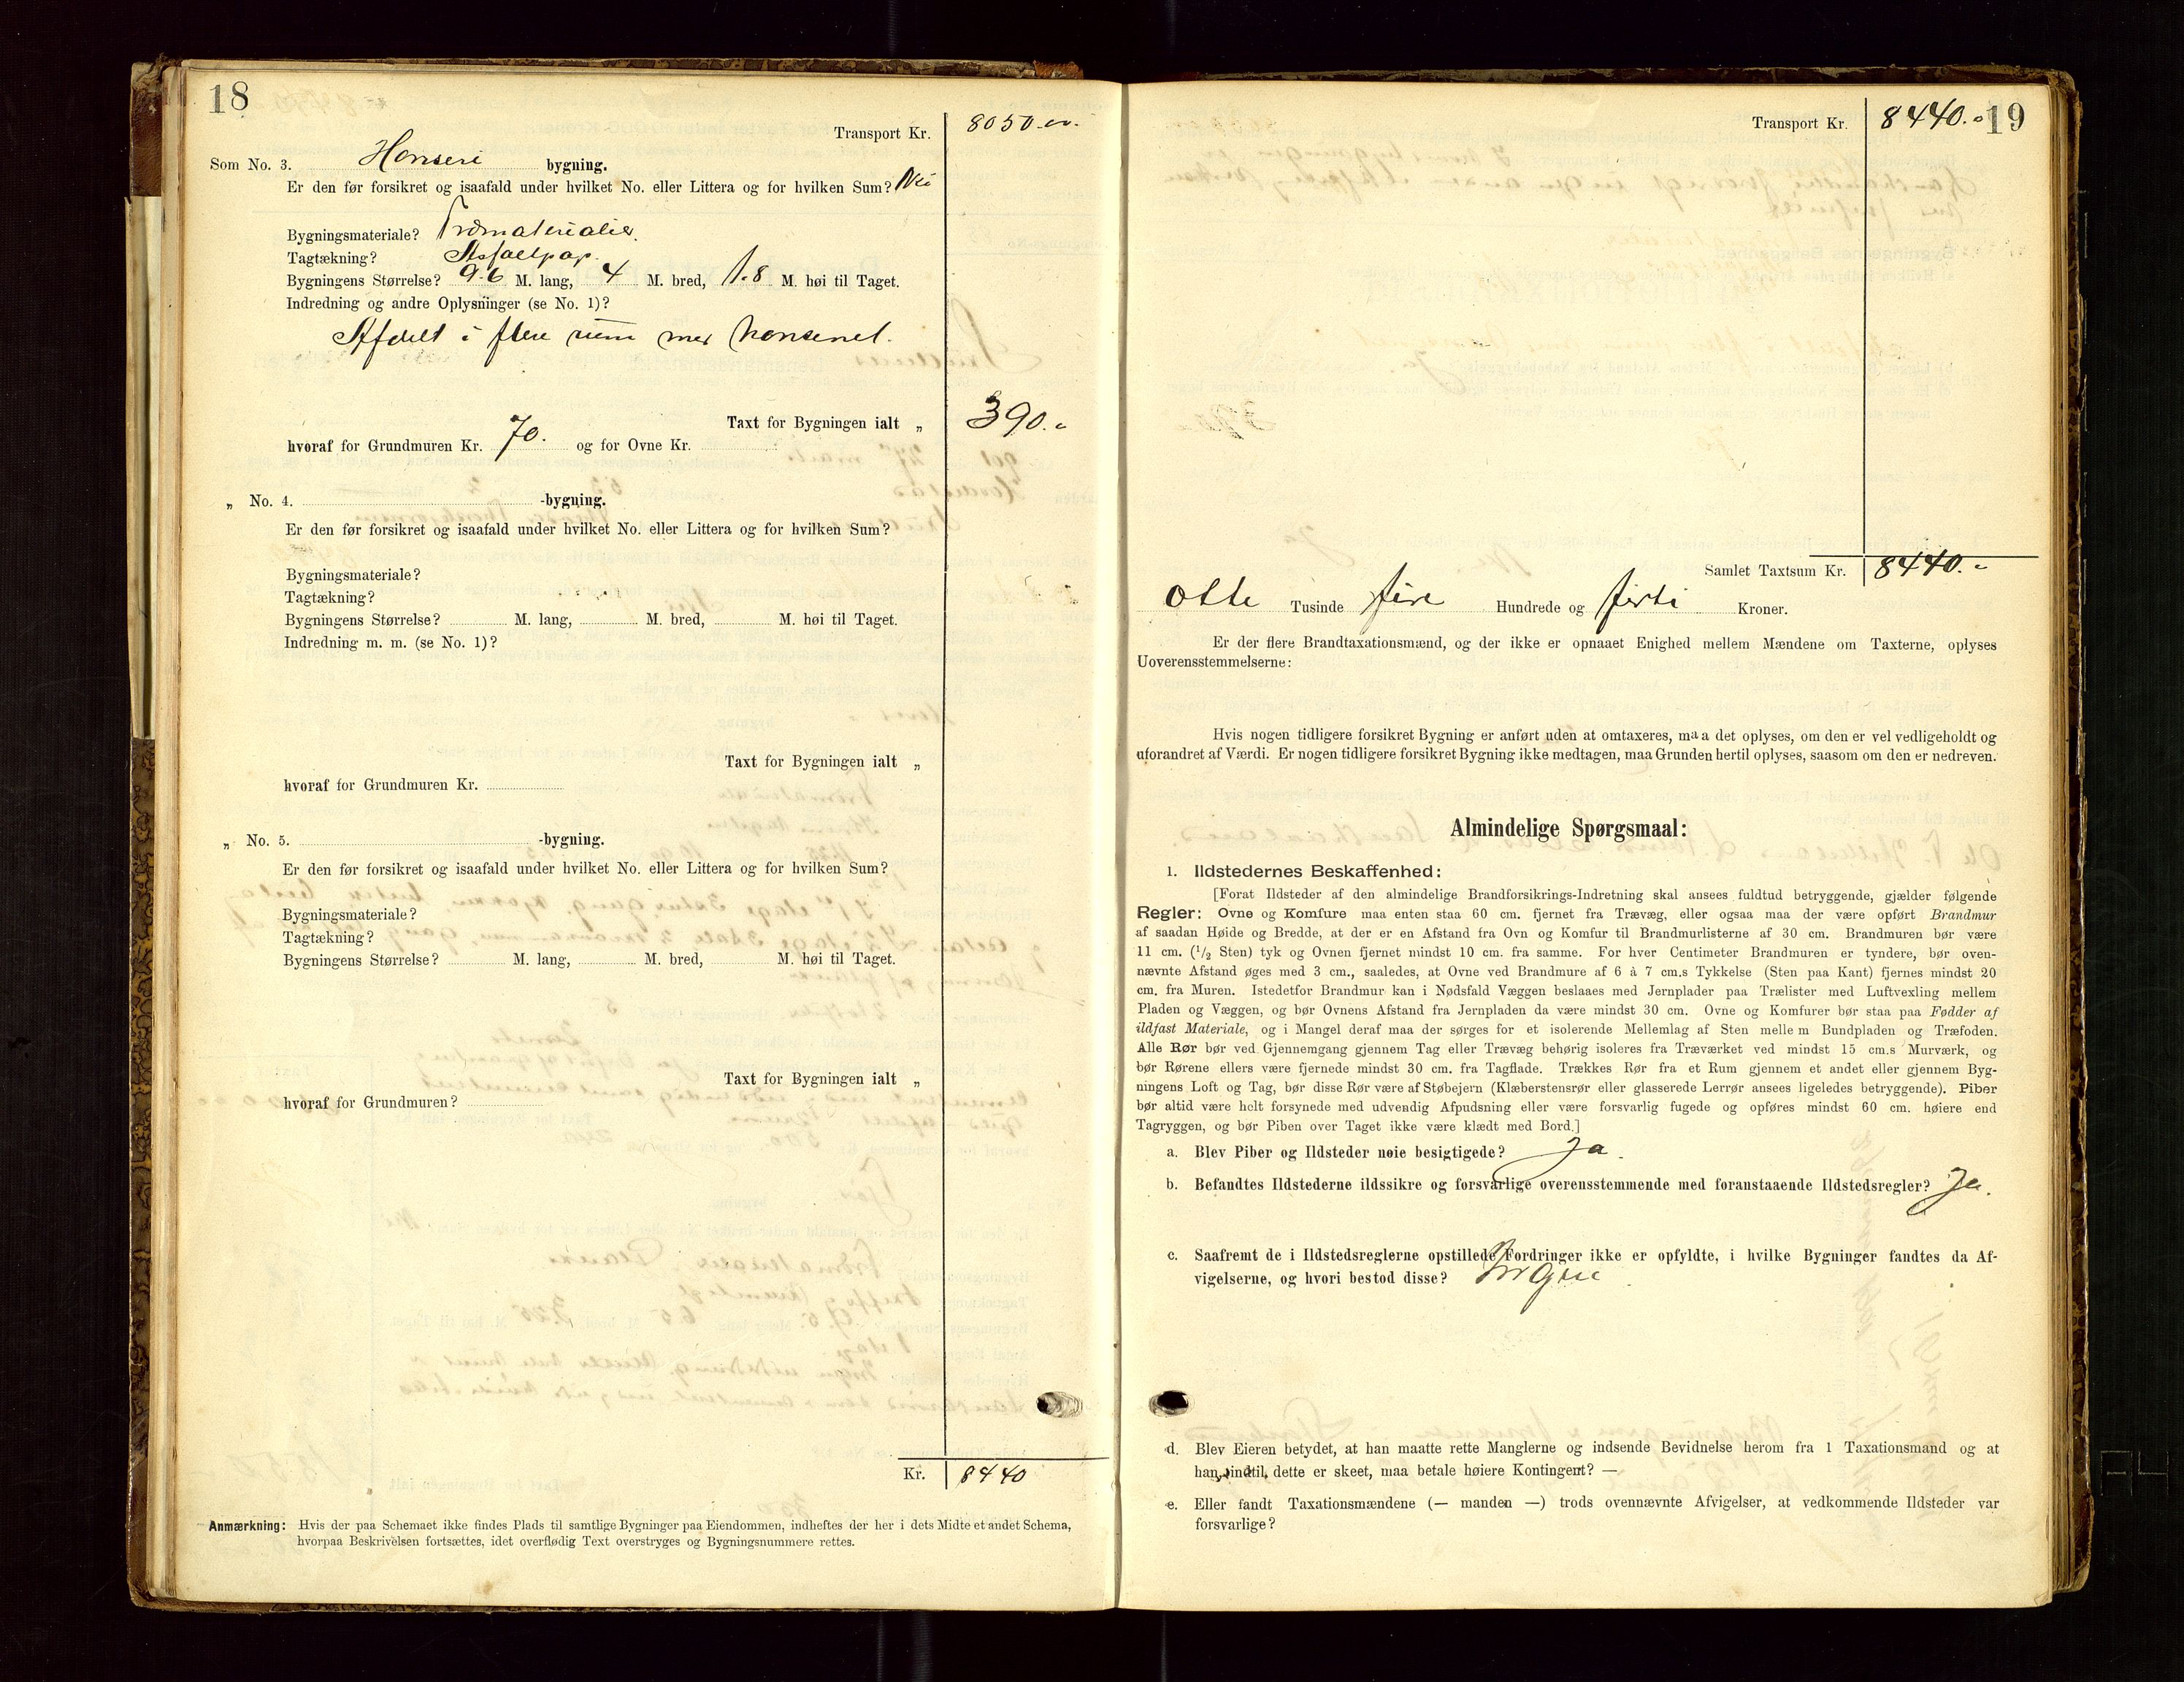 18
Transport Kr. 8050.00.
Som No. 3. Honseri bygning.
Er den før forsikret og isaafald under hvilket No. eller Littera og for hvilken Sum? Nei
Bygningsmateriale? Træmaterialier.
Tagtækning? Asfaltpap.
Bygningens Størrelse? 9.6 M. lang, 4 M. bred, 1.8 M. høi til Taget.
Indredning og andre Oplysninger (se No. 1)?
Afdelt i flere rum med honsenet.
Taxt for Bygningen ialt „ 390.
hvoraf for Grundmuren Kr. 70. og for Ovne Kr.
„ No. 4. -bygning.
Er den før forsikret og isaafald under hvilket No. eller Littera og for hvilken Sum?
Bygningsmateriale?
Tagtækning?
Bygningens Størrelse? M. lang, M. bred, M. høi til Taget.
Indredning m. m. (se No. 1)?
Taxt for Bygningen ialt „
hvoraf for Grundmuren Kr.
„ No. 5. -bygning.
Er den før forsikret og isaafald under hvilket No. eller Littera og for hvilken Sum?
Bygningsmateriale?
Tagtækning?
Bygningens Størrelse? M. lang, M. bred, M. høi til Taget.
Taxt for Bygningen ialt „
hvoraf for Grundmuren?
Kr. 8440
Anmærkning: Hvis der paa Schemaet ikke findes Plads til samtlige Bygninger paa Eiendommen, indheftes der her i dets Midte et andet Schema,
hvorpaa Beskrivelsen fortsættes, idet overflødig Text overstryges og Bygningsnummere rettes.
19
Transport Kr. 8440.
Samlet Taxtsum Kr. 8440.
Otte Tusinde fire Hundrede og firti Kroner.
Er der flere Brandtaxationsmænd, og der ikke er opnaaet Enighed mellem Mændene om Taxterne, oplyses
Uoverensstemmelserne:
Hvis nogen tidligere forsikret Bygning er anført uden at omtaxeres, maa det oplyses, om den er vel vedligeholdt og
uforandret af Værdi. Er nogen tidligere forsikret Bygning ikke medtagen, maa Grunden hertil oplyses, saasom om den er nedreven.
Almindelige Spørgsmaal:
1. Ildstedernes Beskaffenhed:
[Forat Ildsteder af den almindelige Brandforsikrings-Indretning skal ansees fuldtud betryggende, gjælder følgende
Regler: Ovne og Komfure maa enten staa 60 cm. fjernet fra Trævæg, eller ogsaa maa der være opført Brandmur
af saadan Høide og Bredde, at der er en Afstand fra Ovn og Komfur til Brandmurlisterne af 30 cm. Brandmuren bør være
11 cm. (1/2 Sten) tyk og Ovnen fjernet mindst 10 cm. fra samme. For hver Centimeter Brandmuren er tyndere, bør oven-
nævnte Afstand øges med 3 cm., saaledes, at Ovne ved Brandmure af 6 à 7 cm.s Tykkelse (Sten paa Kant) fjernes mindst 20
cm. fra Muren. Istedetfor Brandmur kan i Nødsfald Væggen beslaaes med Jernplader paa Trælister med Luftvexling mellem
Pladen og Væggen, og bør Ovnens Afstand fra Jernpladen da være mindst 30 cm. Ovne og Komfurer bør staa paa Fødder af
ildfast Materiale, og i Mangel deraf maa der sørges for et isolerende Mellemlag af Sten mellem Bundpladen og Træfoden.
Alle Rør bør ved Gjennemgang gjennem Tag eller Trævæg behørig isoleres fra Træværket ved mindst 15 cm.s Murværk, og
bør Rørene ellers være fjernede mindst 30 cm. fra Tagflade. Trækkes Rør fra et Rum gjennem et andet eller gjennem Byg-
ningens Loft og Tag, bør disse Rør være af Støbejern (Klæberstensrør eller glasserede Lerrør ansees ligeledes betryggende). Piber
bør altid være helt forsynede med udvendig Afpudsning eller være forsvarlig fugede og opføres mindst 60 cm. høiere end
Tagryggen, og bør Piben over Taget ikke være klædt med Bord.]
a. Blev Piber og Ildsteder nøie besigtigede? Ja.
b. Befandtes Ildstederne ildssikre og forsvarlige overensstemmende med foranstaaende Ildstedsregler? Ja.
c. Saafremt de i Ildstedsreglerne opstillede Fordringer ikke er opfyldte, i hvilke Bygninger fandtes da Af-
vigelserne, og hvori bestod disse? Ingen.
d. Blev Eieren betydet, at han maatte rette Manglerne og indsende Bevidnelse herom fra 1 Taxationsmand og at
han, indtil dette er skeet, maa betale høiere Kontingent? —
e. Eller fandt Taxationsmændene (— manden —) trods ovennævnte Afvigelser, at vedkommende Ildsteder var
forsvarlige?